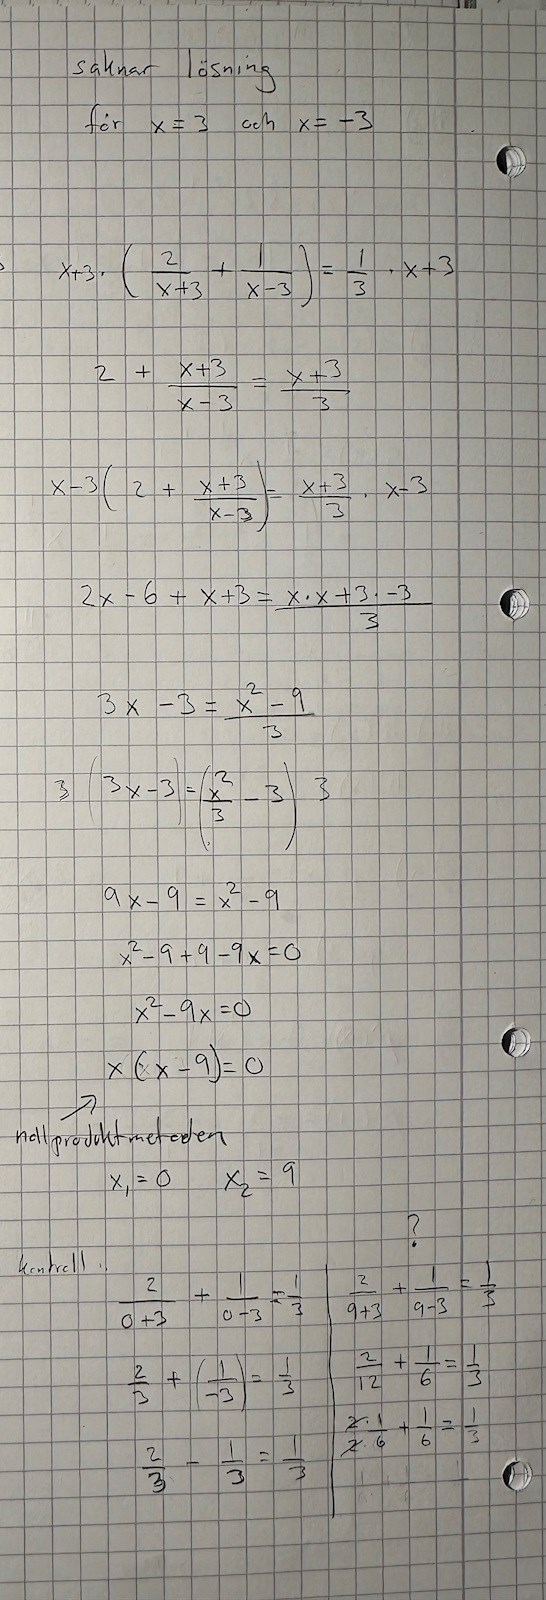 saknar lösning
för x = 3 och x = -3
x+3 · ( 2/(x+3) + 1/(x-3) ) = 1/3 · x+3
2 + (x+3)/(x-3) = (x+3)/3
x-3 ( 2 + (x+3)/(x-3) ) = (x+3)/3 · x-3
2x - 6 + x+3 = (x·x+3·-3)/3
3x - 3 = (x² - 9)/3
3 (3x-3) = (x²/3 - 3) 3
9x - 9 = x² - 9
x² - 9 + 9 - 9x = 0
x² - 9x = 0
x (x - 9) = 0
nollproduktmetoden
x₁ = 0 x₂ = 9
?
kontroll..
2/(0+3) + 1/(0-3) = 1/3
2/3 + (1/-3) = 1/3
2/3 - 1/3 = 1/3
2/(9+3) + 1/(9-3) = 1/3
2/12 + 1/6 = 1/3
(2·1)/(2·6) + 1/6 = 1/3